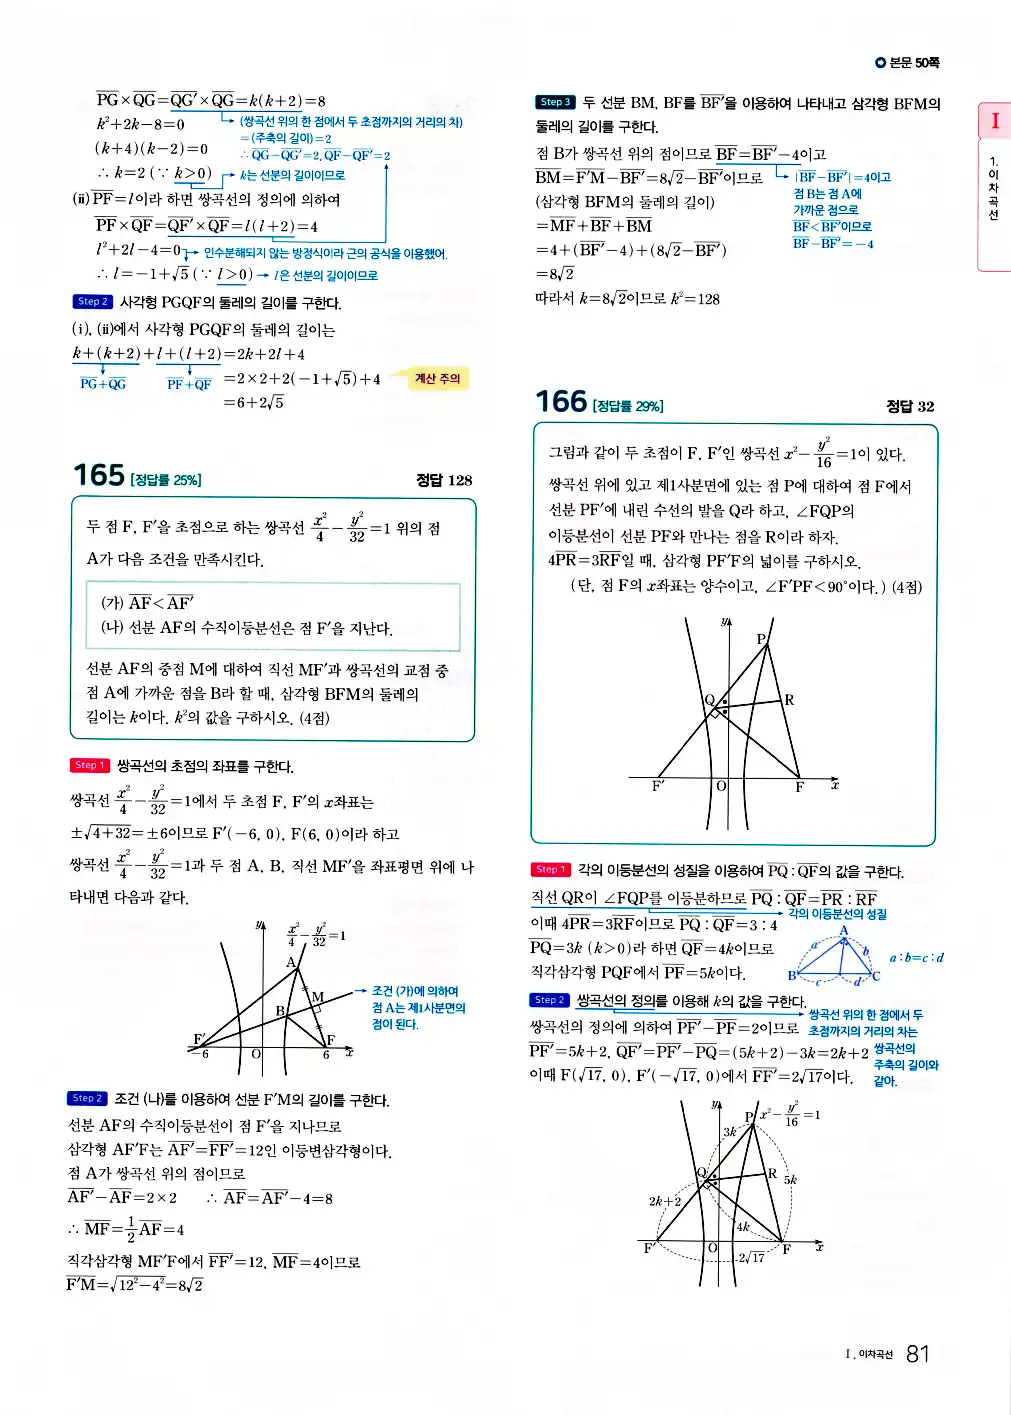 본문 50쪽
PG×QG=QG′×QG=k(k+2)=8
k²+2k−8=0
(쌍곡선 위의 한 점에서 두 초점까지의 거리의 차)
=(주축의 길이)=2
(k+4)(k−2)=0
∴ QG−QG′=2, QF−QF′=2
∴ k=2 (∵ k>0)
k는 선분의 길이이므로
(ii) PF=l이라 하면 쌍곡선의 정의에 의하여
PF×QF=QF′×QF=l(l+2)=4
l²+2l−4=0
인수분해되지 않는 방정식이라 근의 공식을 이용했어.
∴ l=−1+√5 (∵ l>0)
l은 선분의 길이이므로
Step 2 사각형 PGQF의 둘레의 길이를 구한다.
(i), (ii)에서 사각형 PGQF의 둘레의 길이는
k+(k+2)+l+(l+2)=2k+2l+4
PG+QG PF+QF
=2×2+2(−1+√5)+4
계산 주의
=6+2√5
165 [정답률 25%] 정답 128
두 점 F, F′을 초점으로 하는 쌍곡선 x²/4−y²/32=1 위의 점
A가 다음 조건을 만족시킨다.
(가) AF<AF′
(나) 선분 AF의 수직이등분선은 점 F′을 지난다.
선분 AF의 중점 M에 대하여 직선 MF′과 쌍곡선의 교점 중
점 A에 가까운 점을 B라 할 때, 삼각형 BFM의 둘레의
길이는 k이다. k²의 값을 구하시오. (4점)
Step 1 쌍곡선의 초점의 좌표를 구한다.
쌍곡선 x²/4−y²/32=1에서 두 초점 F, F′의 x좌표는
±√4+32=±6이므로 F′(−6, 0), F(6, 0)이라 하고
쌍곡선 x²/4−y²/32=1과 두 점 A, B, 직선 MF′을 좌표평면 위에 나
타내면 다음과 같다.
y
x²/4−y²/32=1
A
M
B
F′
F
−6 O 6 x
조건 (가)에 의하여
점 A는 제1사분면의
점이 된다.
Step 2 조건 (나)를 이용하여 선분 F′M의 길이를 구한다.
선분 AF의 수직이등분선이 점 F′을 지나므로
삼각형 AF′F는 AF′=FF′=12인 이등변삼각형이다.
점 A가 쌍곡선 위의 점이므로
AF′−AF=2×2 ∴ AF=AF′−4=8
∴ MF=1/2AF=4
직각삼각형 MF′F에서 FF′=12, MF=4이므로
F′M=√12²−4²=8√2
Step 3 두 선분 BM, BF를 BF′을 이용하여 나타내고 삼각형 BFM의
둘레의 길이를 구한다.
점 B가 쌍곡선 위의 점이므로 BF=BF′−4이고
BM=F′M−BF′=8√2−BF′이므로
(삼각형 BFM의 둘레의 길이)
=MF+BF+BM
=4+(BF′−4)+(8√2−BF′)
=8√2
따라서 k=8√2이므로 k²=128
|BF−BF′|=4이고
점 B는 점 A에
가까운 점으로
BF<BF′이므로
BF−BF′=−4
166 [정답률 29%] 정답 32
그림과 같이 두 초점이 F, F′인 쌍곡선 x²−y²/16=1이 있다.
쌍곡선 위에 있고 제1사분면에 있는 점 P에 대하여 점 F에서
선분 PF′에 내린 수선의 발을 Q라 하고, ∠FQP의
이등분선이 선분 PF와 만나는 점을 R이라 하자.
4PR=3RF일 때, 삼각형 PF′F의 넓이를 구하시오.
(단, 점 F의 x좌표는 양수이고, ∠F′PF<90°이다.) (4점)
y
P
Q
R
F′ O F x
Step 1 각의 이등분선의 성질을 이용하여 PQ : QF의 값을 구한다.
직선 QR이 ∠FQP를 이등분하므로 PQ : QF=PR : RF
각의 이등분선의 성질
이때 4PR=3RF이므로 PQ : QF=3 : 4
PQ=3k (k>0)라 하면 QF=4k이므로
직각삼각형 PQF에서 PF=5k이다.
A
a b
B c d C
a : b=c : d
Step 2 쌍곡선의 정의를 이용해 k의 값을 구한다.
쌍곡선의 정의에 의하여 PF′−PF=2이므로
PF′=5k+2, QF′=PF′−PQ=(5k+2)−3k=2k+2
이때 F(√17, 0), F′(−√17, 0)에서 FF′=2√17이다.
쌍곡선 위의 한 점에서 두
초점까지의 거리의 차는
쌍곡선의
주축의 길이와
같아.
y
P
x²−y²/16=1
3k
Q
R
5k
2k+2
4k
F′ O F x
2√17
I
1. 이차곡선
I. 이차곡선 81